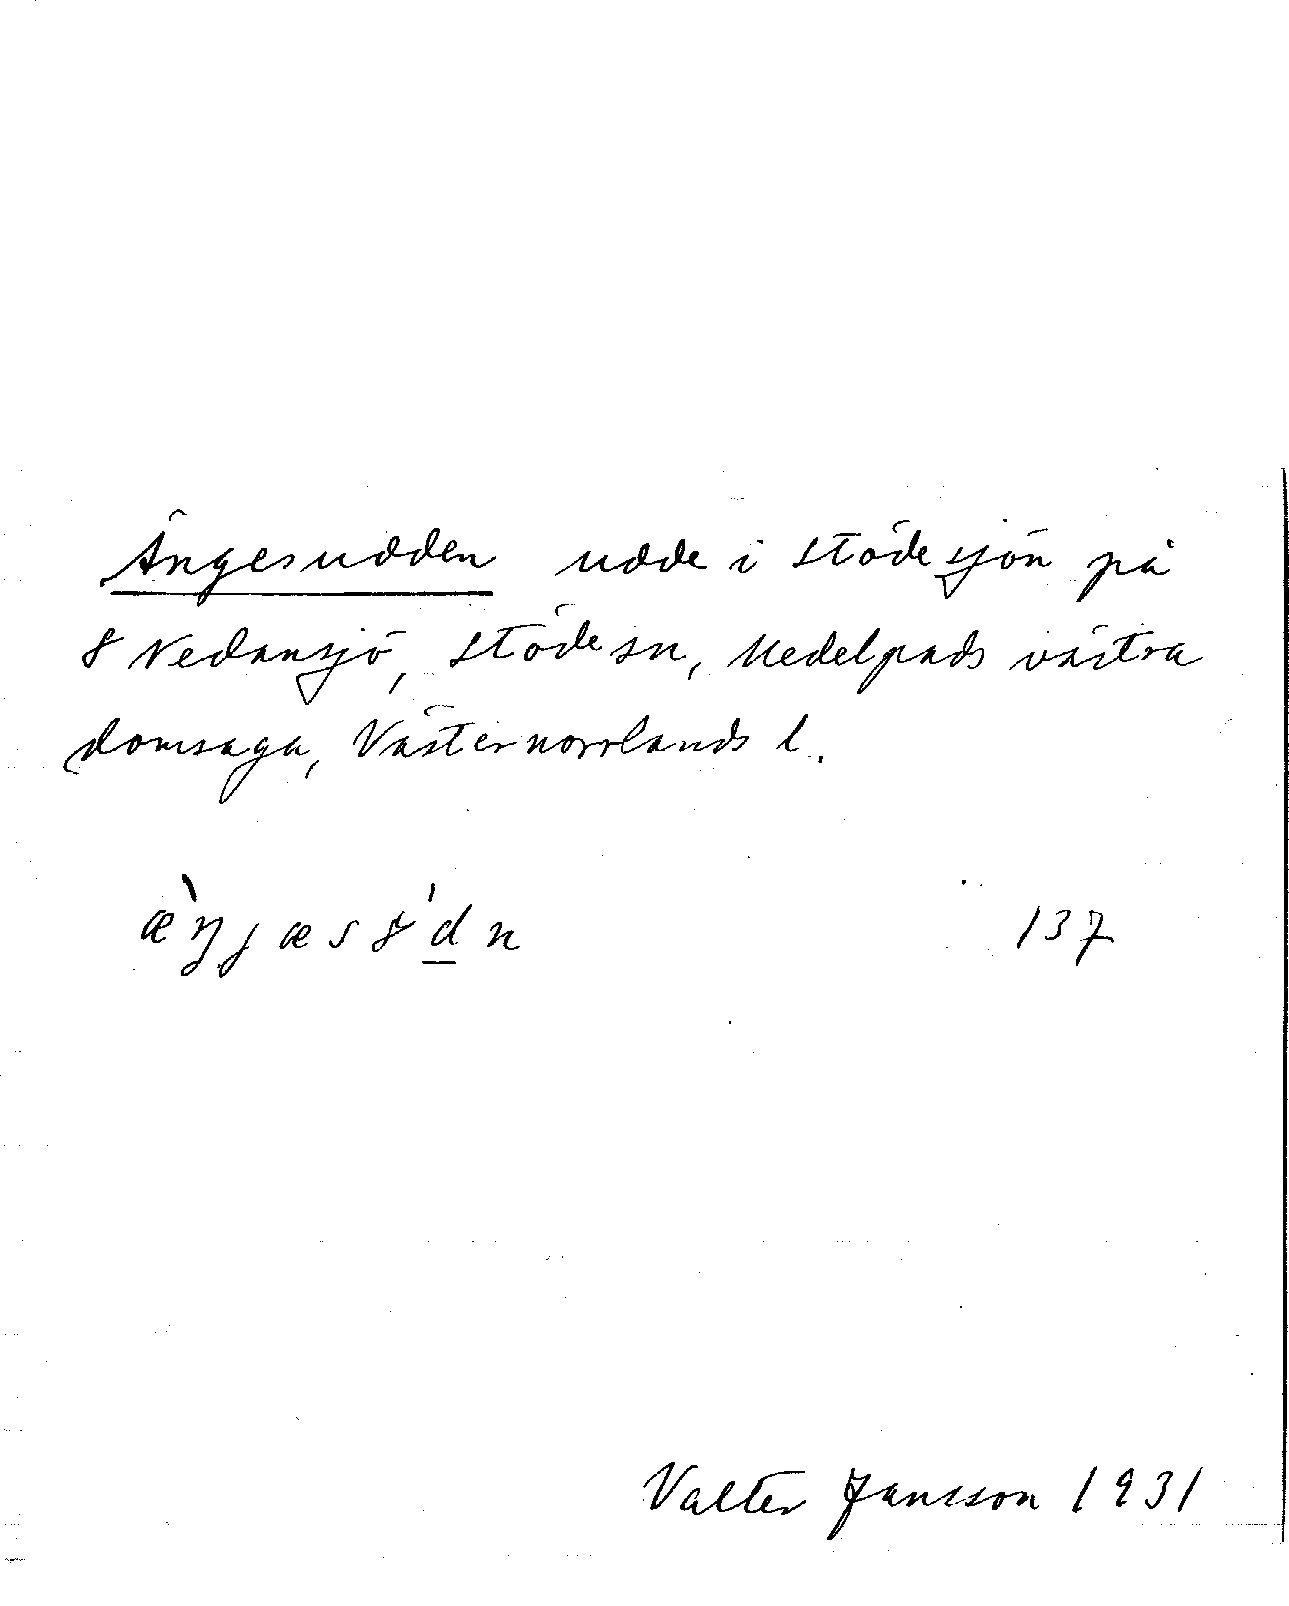 Ängesudden udde i Stödesjön på
8 Nedansjö, Stöde sn, Medelpads västra
domsaga, Västernorrlands l.
æ̀ŋjæs8'd̲n 137
Valter Jansson 1931